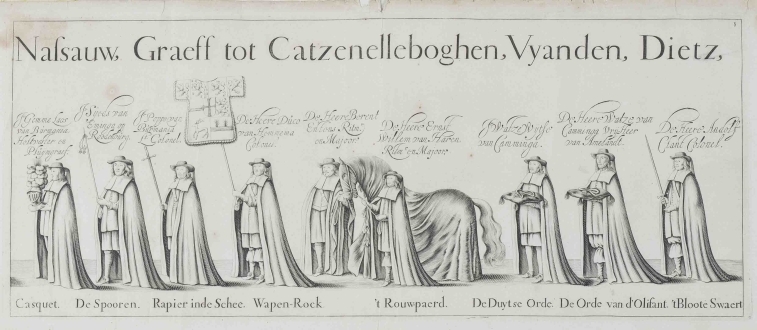 Nassauw, Graeff tot Catzenelleboghen, Vyanden, Dietz,
Jr Gemme Laer
van Burmania
Hofmeester en
Jr Sjucks van
Jr
De Heere Duco
van Hemmema
Colonel.
De Heere Berent
Ritm.r
en Majoor
De Heere Ernst
Willem van Haren
Ritm.r en Majoor
Jr Watze Wytse
van Camminga.
De Heere Watze van
Camminga Vrij Heer
van Amelandt.
De Heere
Clant Colonel.
Casquet.
De Spooren.
Rapier inde Schee.
Wapen-Rock
't Rouwpaerd.
De Duytse Orde.
De Orde van d'Olifant.
't Bloote Swaert